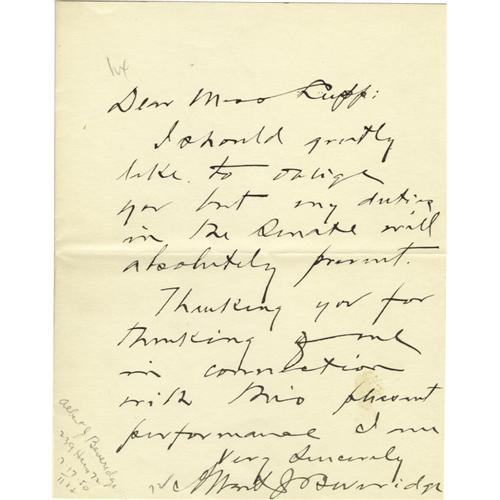 Dear Miss Rupp:
I should greatly
like to oblige
you but my duties
in the Senate will
absolutely prevent.
Thanking you for
thinking of me
in connection
with this pleasant
performance I am
Very Sincerely
Albert J Beveridge
Albert J Beveridge